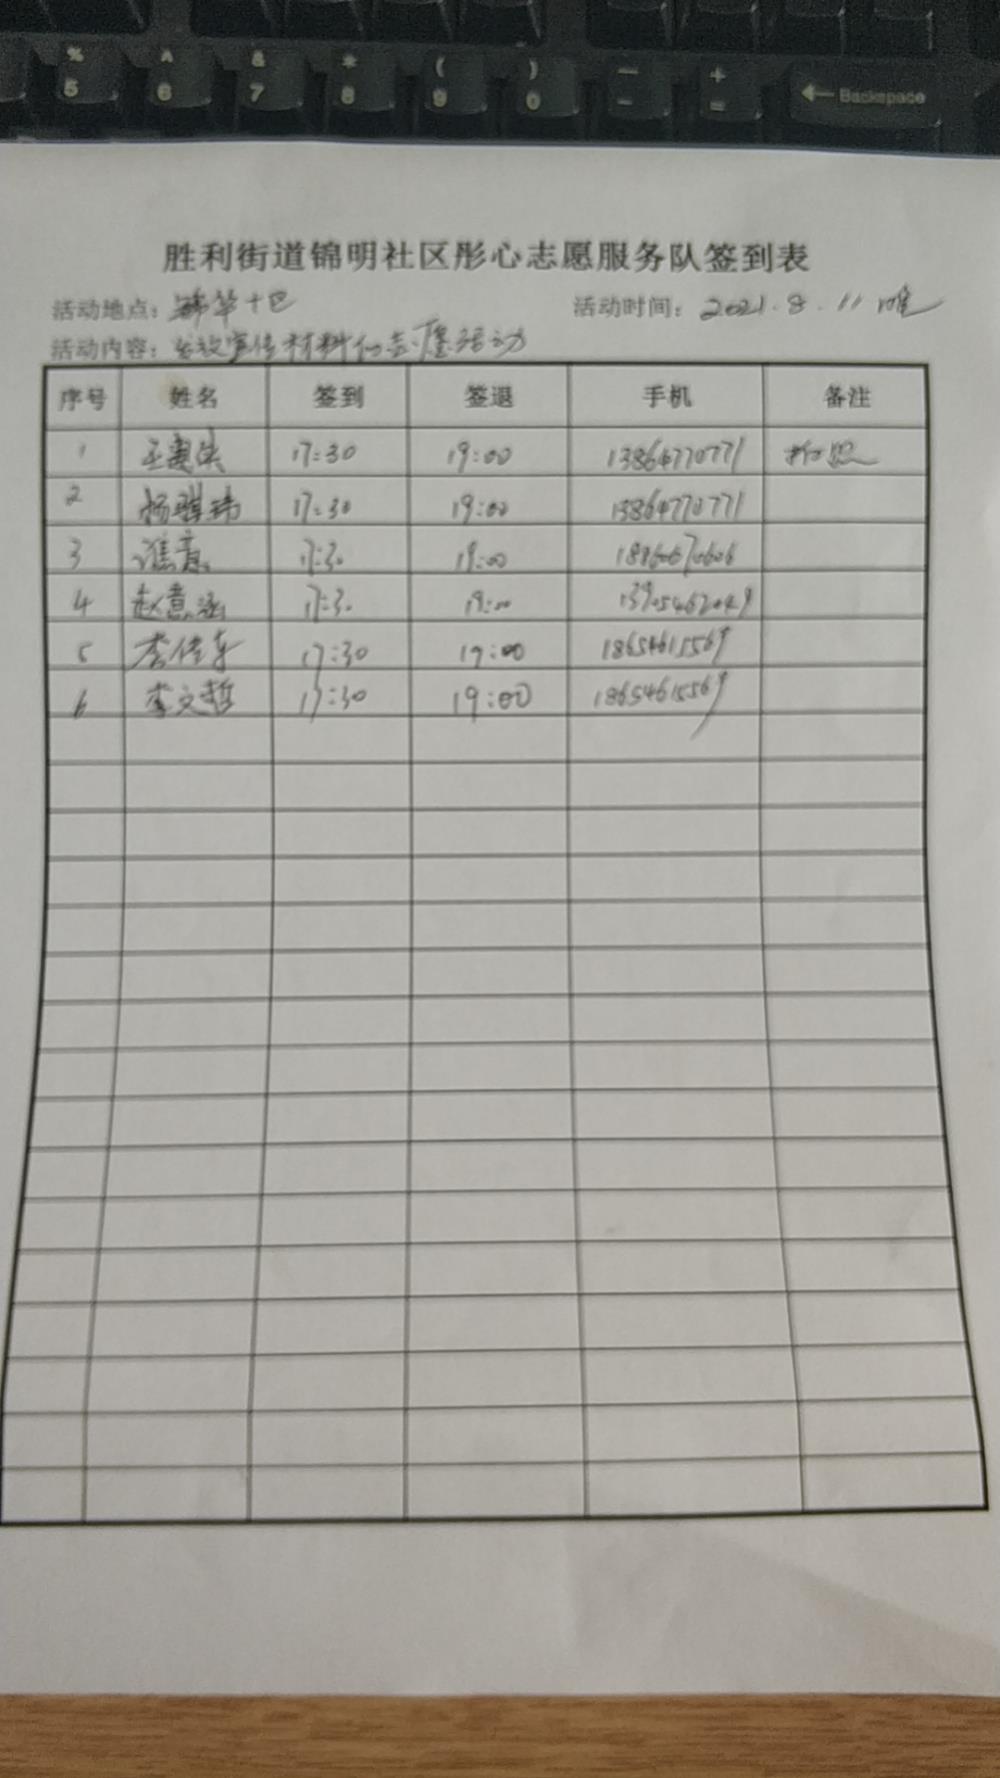 % ^ & * ( ) — +
5 6 7 8 9 0 - = ← Backspace
胜利街道锦明社区彤心志愿服务队签到表
活动地点: 锦华十区 活动时间: 2021.8.11 晚
活动内容: 发放宣传材料的志愿活动
序号 姓名 签到 签退 手机 备注
1 17:30 19:00 13864770771
2 杨骐玮 17:30 19:00 13864770771
3 谯意 17:30 19:00 18860670606
4 赵意涵 17:30 19:00 13905462049
5 李佳车 17:30 19:00 18654615569
6 李文哲 17:30 19:00 18654615569